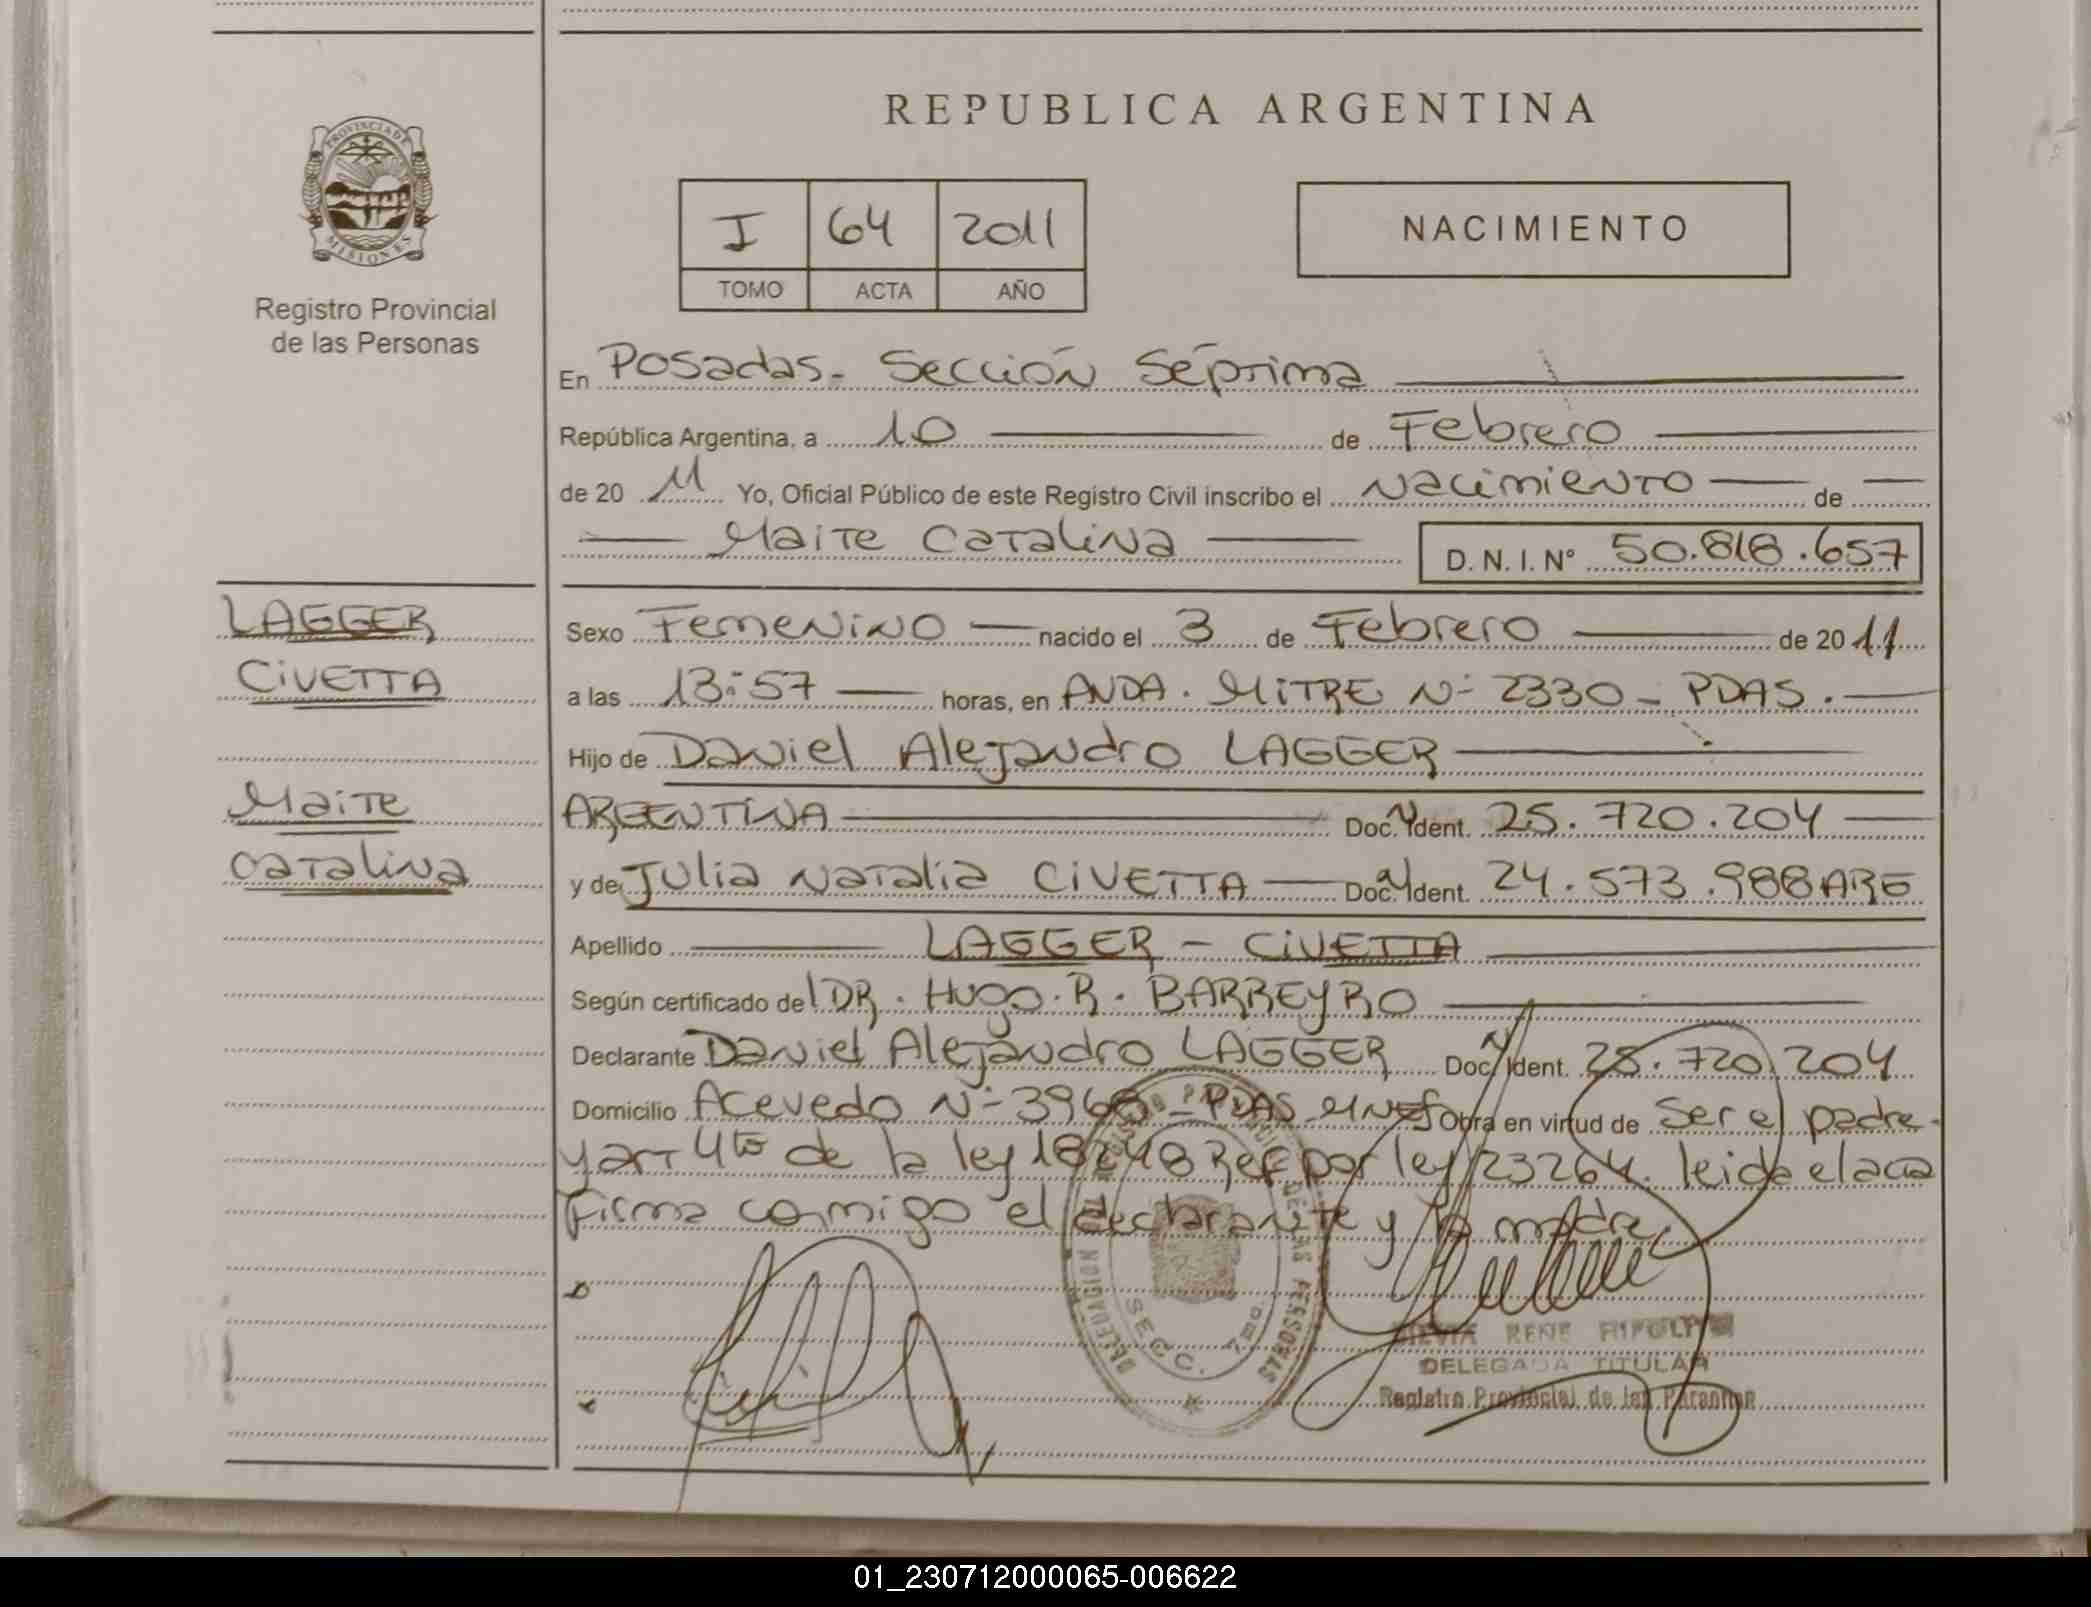 REPUBLICA ARGENTINA
PROVINCIA DE
MISIONES
Registro Provincial
de las Personas
I 64 2011
TOMO ACTA AÑO
NACIMIENTO
En Posadas - Sección Séptima
República Argentina, a 10 de Febrero
de 20 11 Yo, Oficial Público de este Registro Civil inscribo el Nacimiento de
Maite Catalina D. N. I. N° 50.818.657
LAGGER
CIVETTA
Maite
Catalina
Sexo Femenino nacido el 3 de Febrero de 2011
a las 13:57 horas, en AVDA. MITRE N- 2330 - PDAS.
Hijo de Daniel Alejandro LAGGER
ARGENTINA Doc. Ident. 25.720.204
y de Julia Natalia CIVETTA Doc. Ident. 24.573.988 ARG
Apellido LAGGER - CIVETTA
Según certificado del DR. HUGO. R. BARREYRO
Declarante Daniel Alejandro LAGGER Doc. Ident. 25.720.204
Domicilio Acevedo N- 3968 - PDAS - Mnes Obra en virtud de ser el padre -
y art 4to de la ley 18248 Ref por ley 23264. leida el acta
Firma conmigo el declarante y la madre
SECC. 7ma.
DE LAS PERSONAS
RENE
DELEGADA TITULAR
Registro Provincial de las Personas
01_230712000065-006622